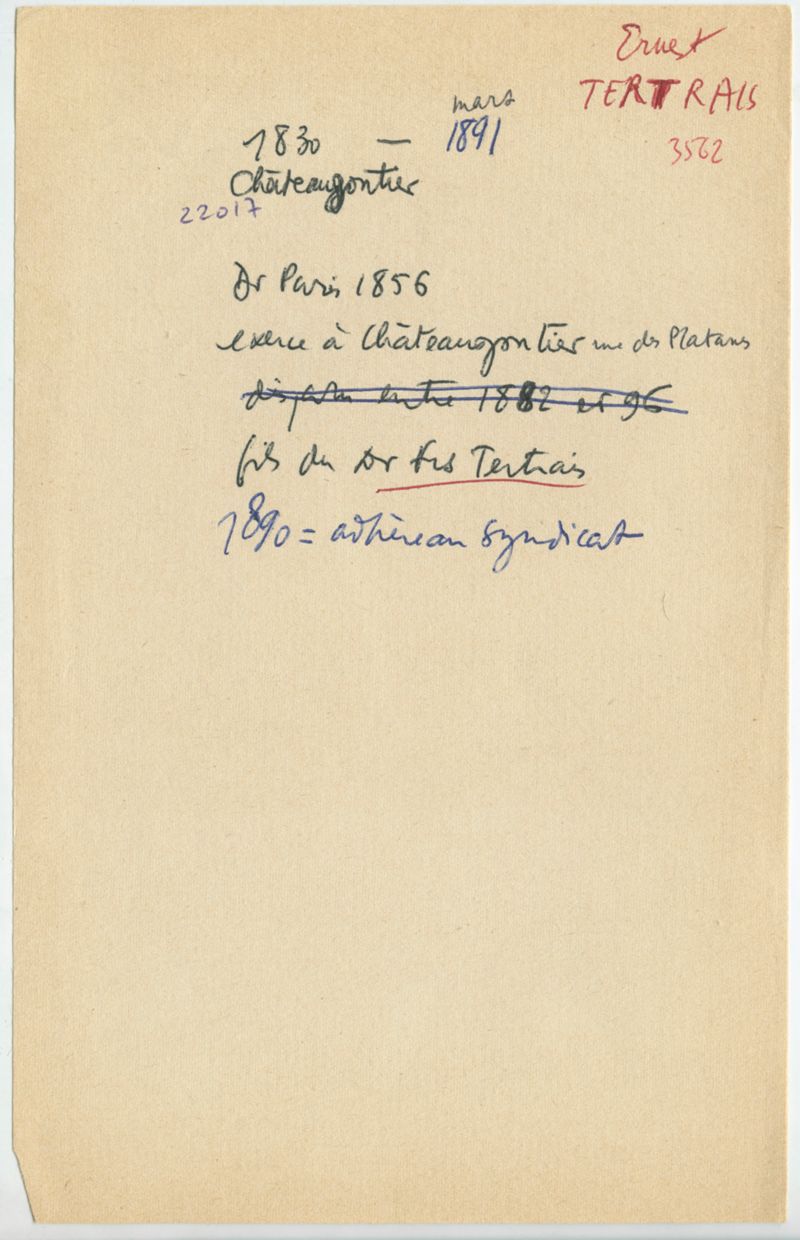 Ernest
TERTRAIS
3562
mars
1830 — 1891
Châteaugontier
22017
Dr Paris 1856
exerce à Châteaugontier rue des Platanes
disparu entre 1882 et 96
fils du Dr Frs Tertrais
1890 = adhère au Syndicat